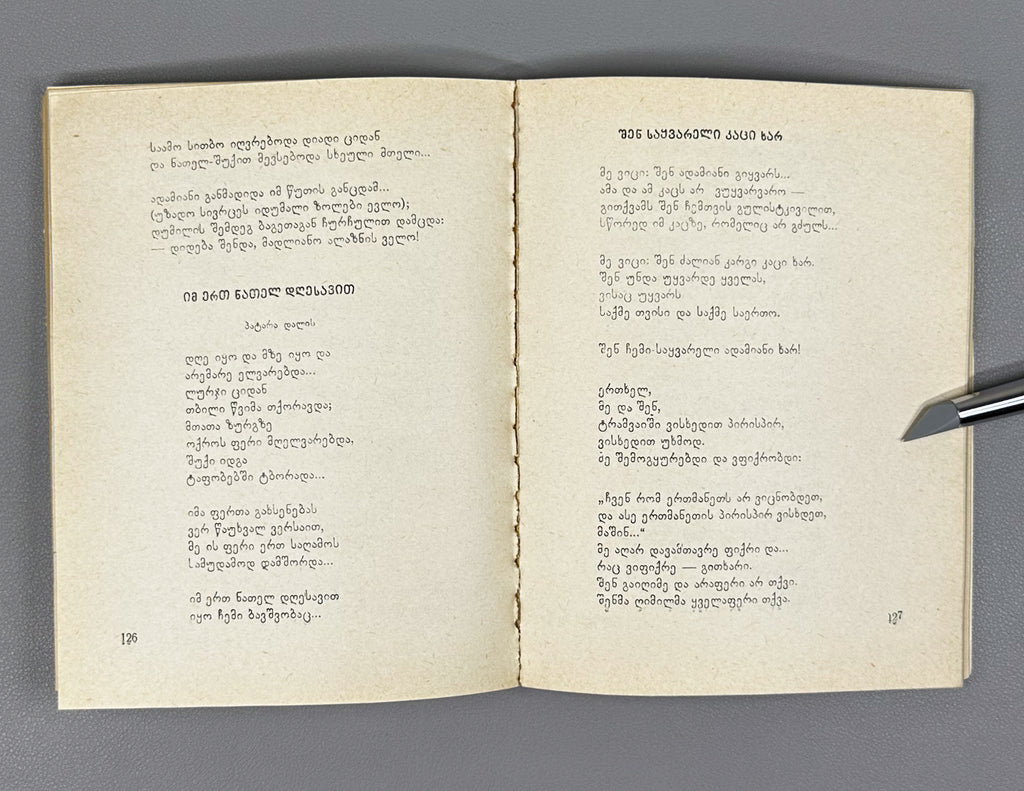 საამო სითბო იღვრებოდა დიადი ციდან
და ნათელ-შუქით მევსებოდა სხეული მთელი...
ადამიანი განმადიდა იმ წუთის განცდამ...
(უზადო სივრცეს იდუმალი ზოლები ევლო);
დუმილის შემდეგ ბაგეთაგან ჩურჩულით დამცდა:
— დიდება შენდა, მადლიანო ალაზნის ველო!
იმ ერთ ნათელ დღესავით
პატარა დალის
დღე იყო და მზე იყო და
არემარე ელვარებდა...
ლურჯი ციდან
თბილი წვიმა თქორავდა;
მთათა ზურგზე
ოქროს ფერი მღელვარებდა,
შუქი იდგა
ტაფობებში ტბორადა...
იმა ფერთა გახსენებას
ვერ წაუხვალ ვერსაით,
მე ის ფერი ერთ საღამოს
სამუდამოდ დამშორდა...
იმ ერთ ნათელ დღესავით
იყო ჩემი ბავშვობაც...
126
შენ საყვარელი კაცი ხარ
მე ვიცი: შენ ადამიანი გიყვარს...
ამა და ამ კაცს არ ვუყვარვარო —
გითქვამს შენ ჩემთვის გულისტკივილით,
სწორედ იმ კაცზე, რომელიც არ გძულს...
მე ვიცი: შენ ძალიან კარგი კაცი ხარ.
შენ უნდა უყვარდე ყველას,
ვისაც უყვარს
საქმე თვისი და საქმე საერთო.
შენ ჩემი-საყვარელი ადამიანი ხარ!
ერთხელ,
მე და შენ,
ტრამვაიში ვისხედით პირისპირ,
ვისხედით უხმოდ.
მე შემოგყურებდი და ვფიქრობდი:
„ჩვენ რომ ერთმანეთს არ ვიცნობდეთ,
და ასე ერთმანეთის პირისპირ ვისხდეთ,
მაშინ...“
მე აღარ დავამთავრე ფიქრი და...
რაც ვიფიქრე — გითხარი.
შენ გაიღიმე და არაფერი არ თქვი.
შენმა ღიმილმა ყველაფერი თქვა.
127